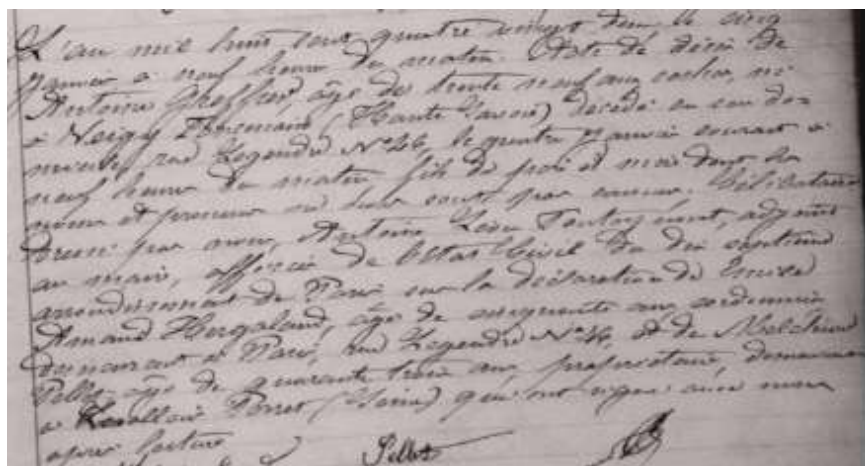 L'an mil huit cent quatre vingt deux le cinq
Janvier à neuf heures du matin. Acte de décès de
Antoine Greffoz, âgé de trente neuf ans cocher, né
à Veigy Foncenaix (Haute Savoie) décédé en son do-
micile, rue Legendre N° 46, le quatre Janvier courant à
neuf heures du matin fils de père et mère dont les
noms et prénoms ne nous sont pas connus. Célibataire
Dressé par nous, Antoine Léon adjoint
au maire, officier de l'état civil du dix septième
arrondissement de Paris sur la déclaration de
Amand âgé de cinquante ans, cordonnier
demeurant à Paris, rue Legendre N° 46, et de Melchior
Pellet âgé de quarante trois ans, propriétaire, demeurant
à Levallois Perret (Seine) qui ont signé avec nous
après lecture
Pellet